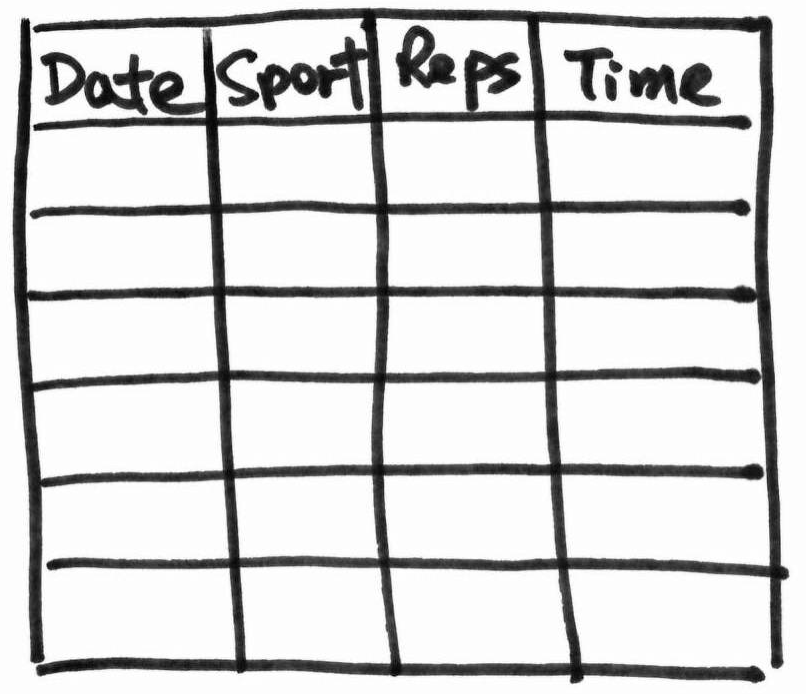 Date Sport Reps Time